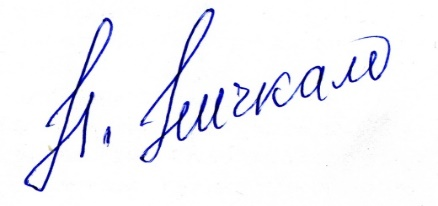 Н. Ничкало